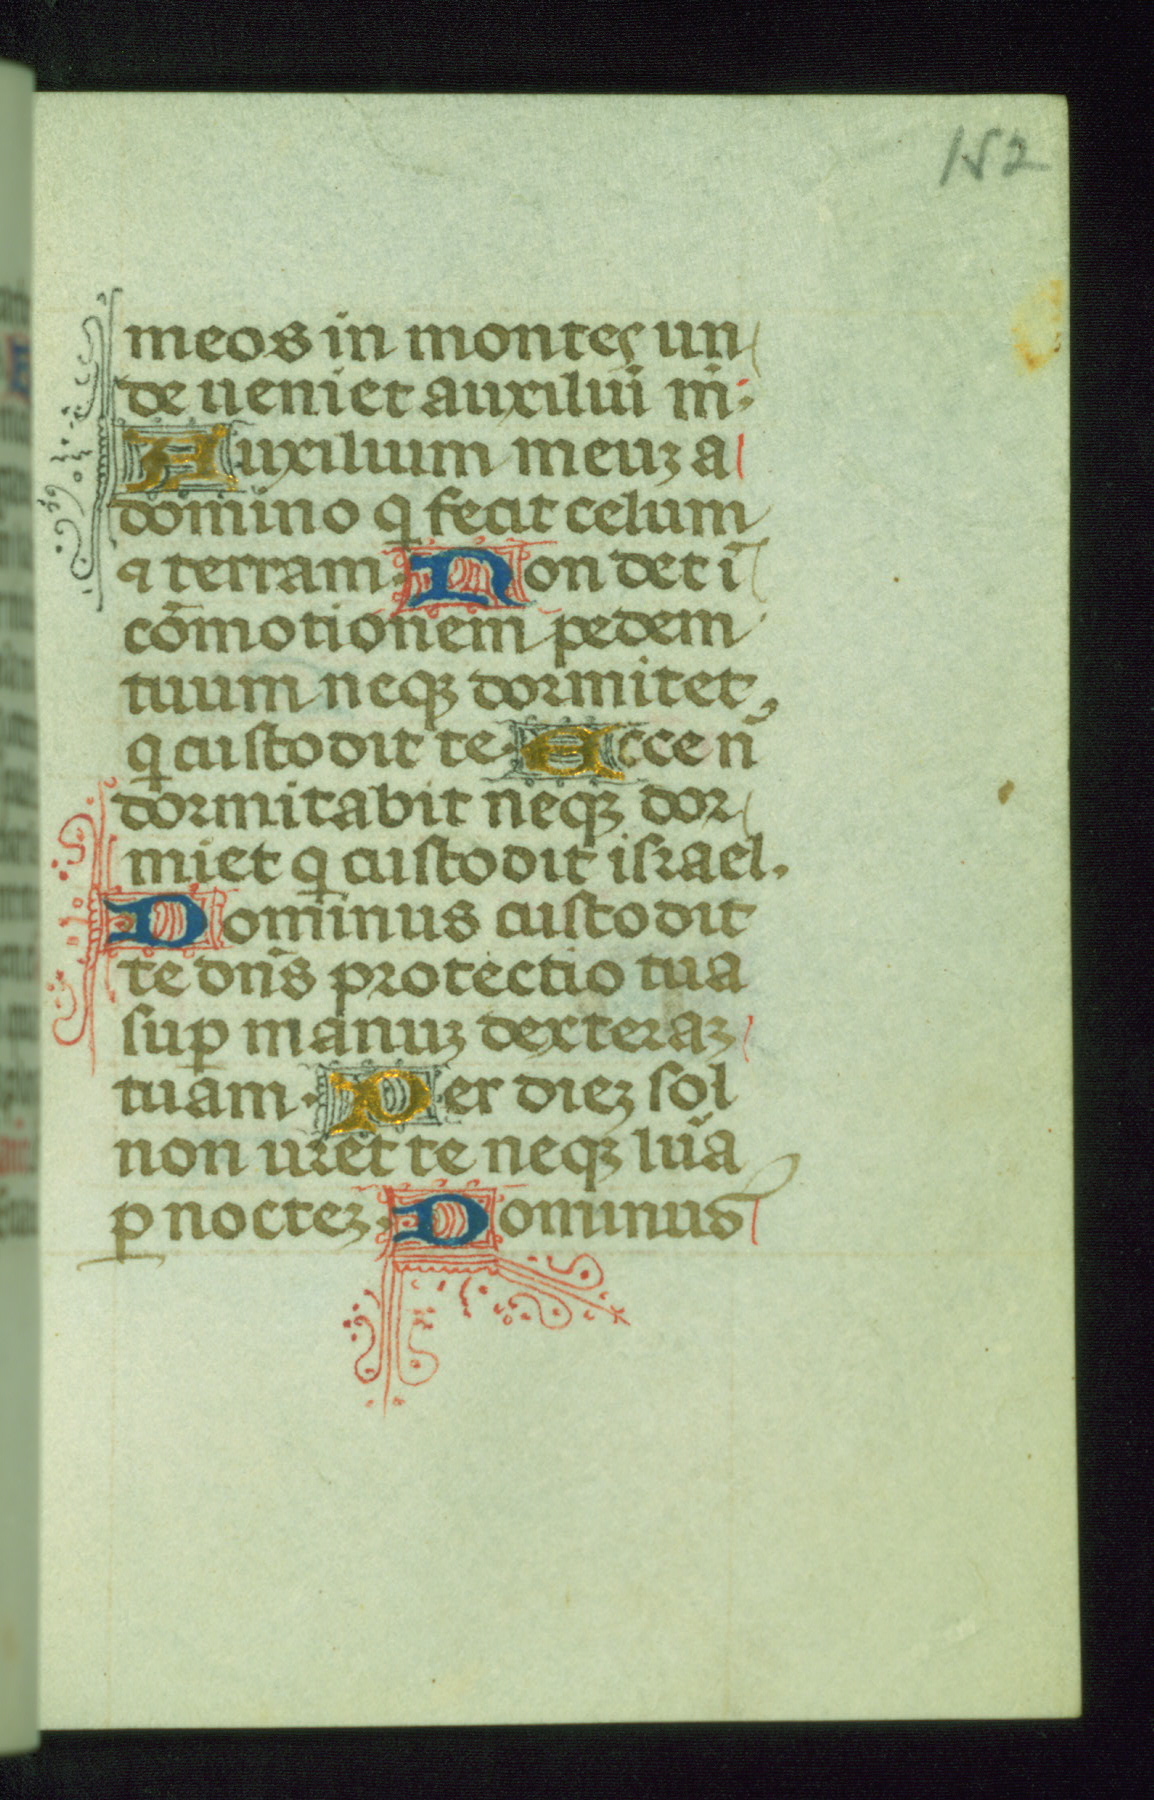 152
meos in montes un
de ueniet auxiliuʒ m̄:
Auxilium meuʒ a
domino q̇ fecit celum
⁊ terram. Non det ī
cōmotionem pedem
tuum neqʒ dormitet,
q̇ custodit te. Ecce n̄
dormitabit neqʒ dor
miet q̇ custodit israel.
Dominus custodit
te dn̄s protectio tua
suꝑ manuʒ dexteraʒ
tuam. Per dieʒ sol
non uret te neqʒ lūa
ꝑ nocteʒ. Dominus